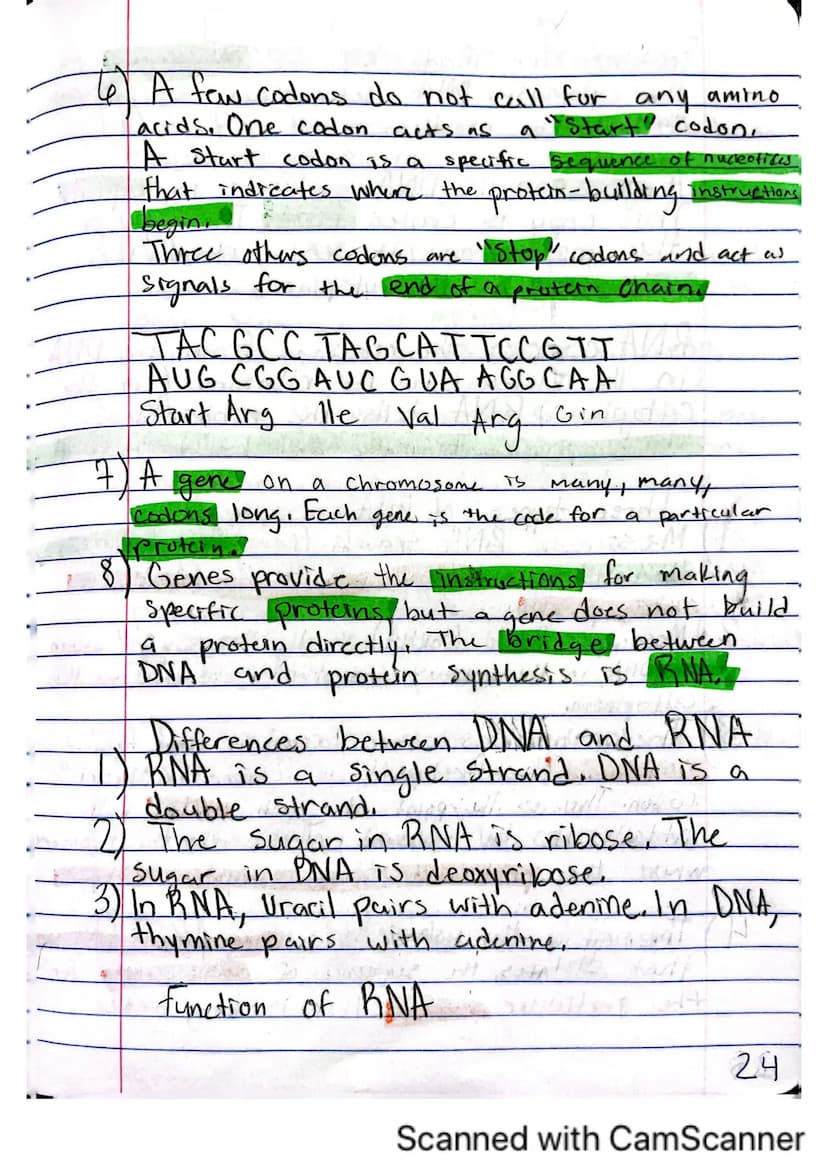 6) A few codons do not call for any amino
acids. One codon acts as a "Start" codon.
A start codon is a specific sequence of nucleotices
that indicates where the protein-building instructions
begin.
Three others codons are "Stop" codons and act as
signals for the end of a protein chain.
TAC GCC TAGCATTCCGTT
AUG CGG AUC GUA AGG CAA
Start Arg Ile Val Arg Gin
7) A gene on a chromosome is many, many,
codons long. Each gene is the code for a particular
protein.
8) Genes provide the instructions for making
specific proteins, but a gene does not build
a protein directly. The bridge between
DNA and protein synthesis is RNA.
Differences between DNA and RNA
1) RNA is a single strand. DNA is a
double strand.
2) The sugar in RNA is ribose. The
sugar in DNA is deoxyribose.
3) In RNA, Uracil pairs with adenine. In DNA,
thymine pairs with adenine.
Function of RNA
24
Scanned with CamScanner